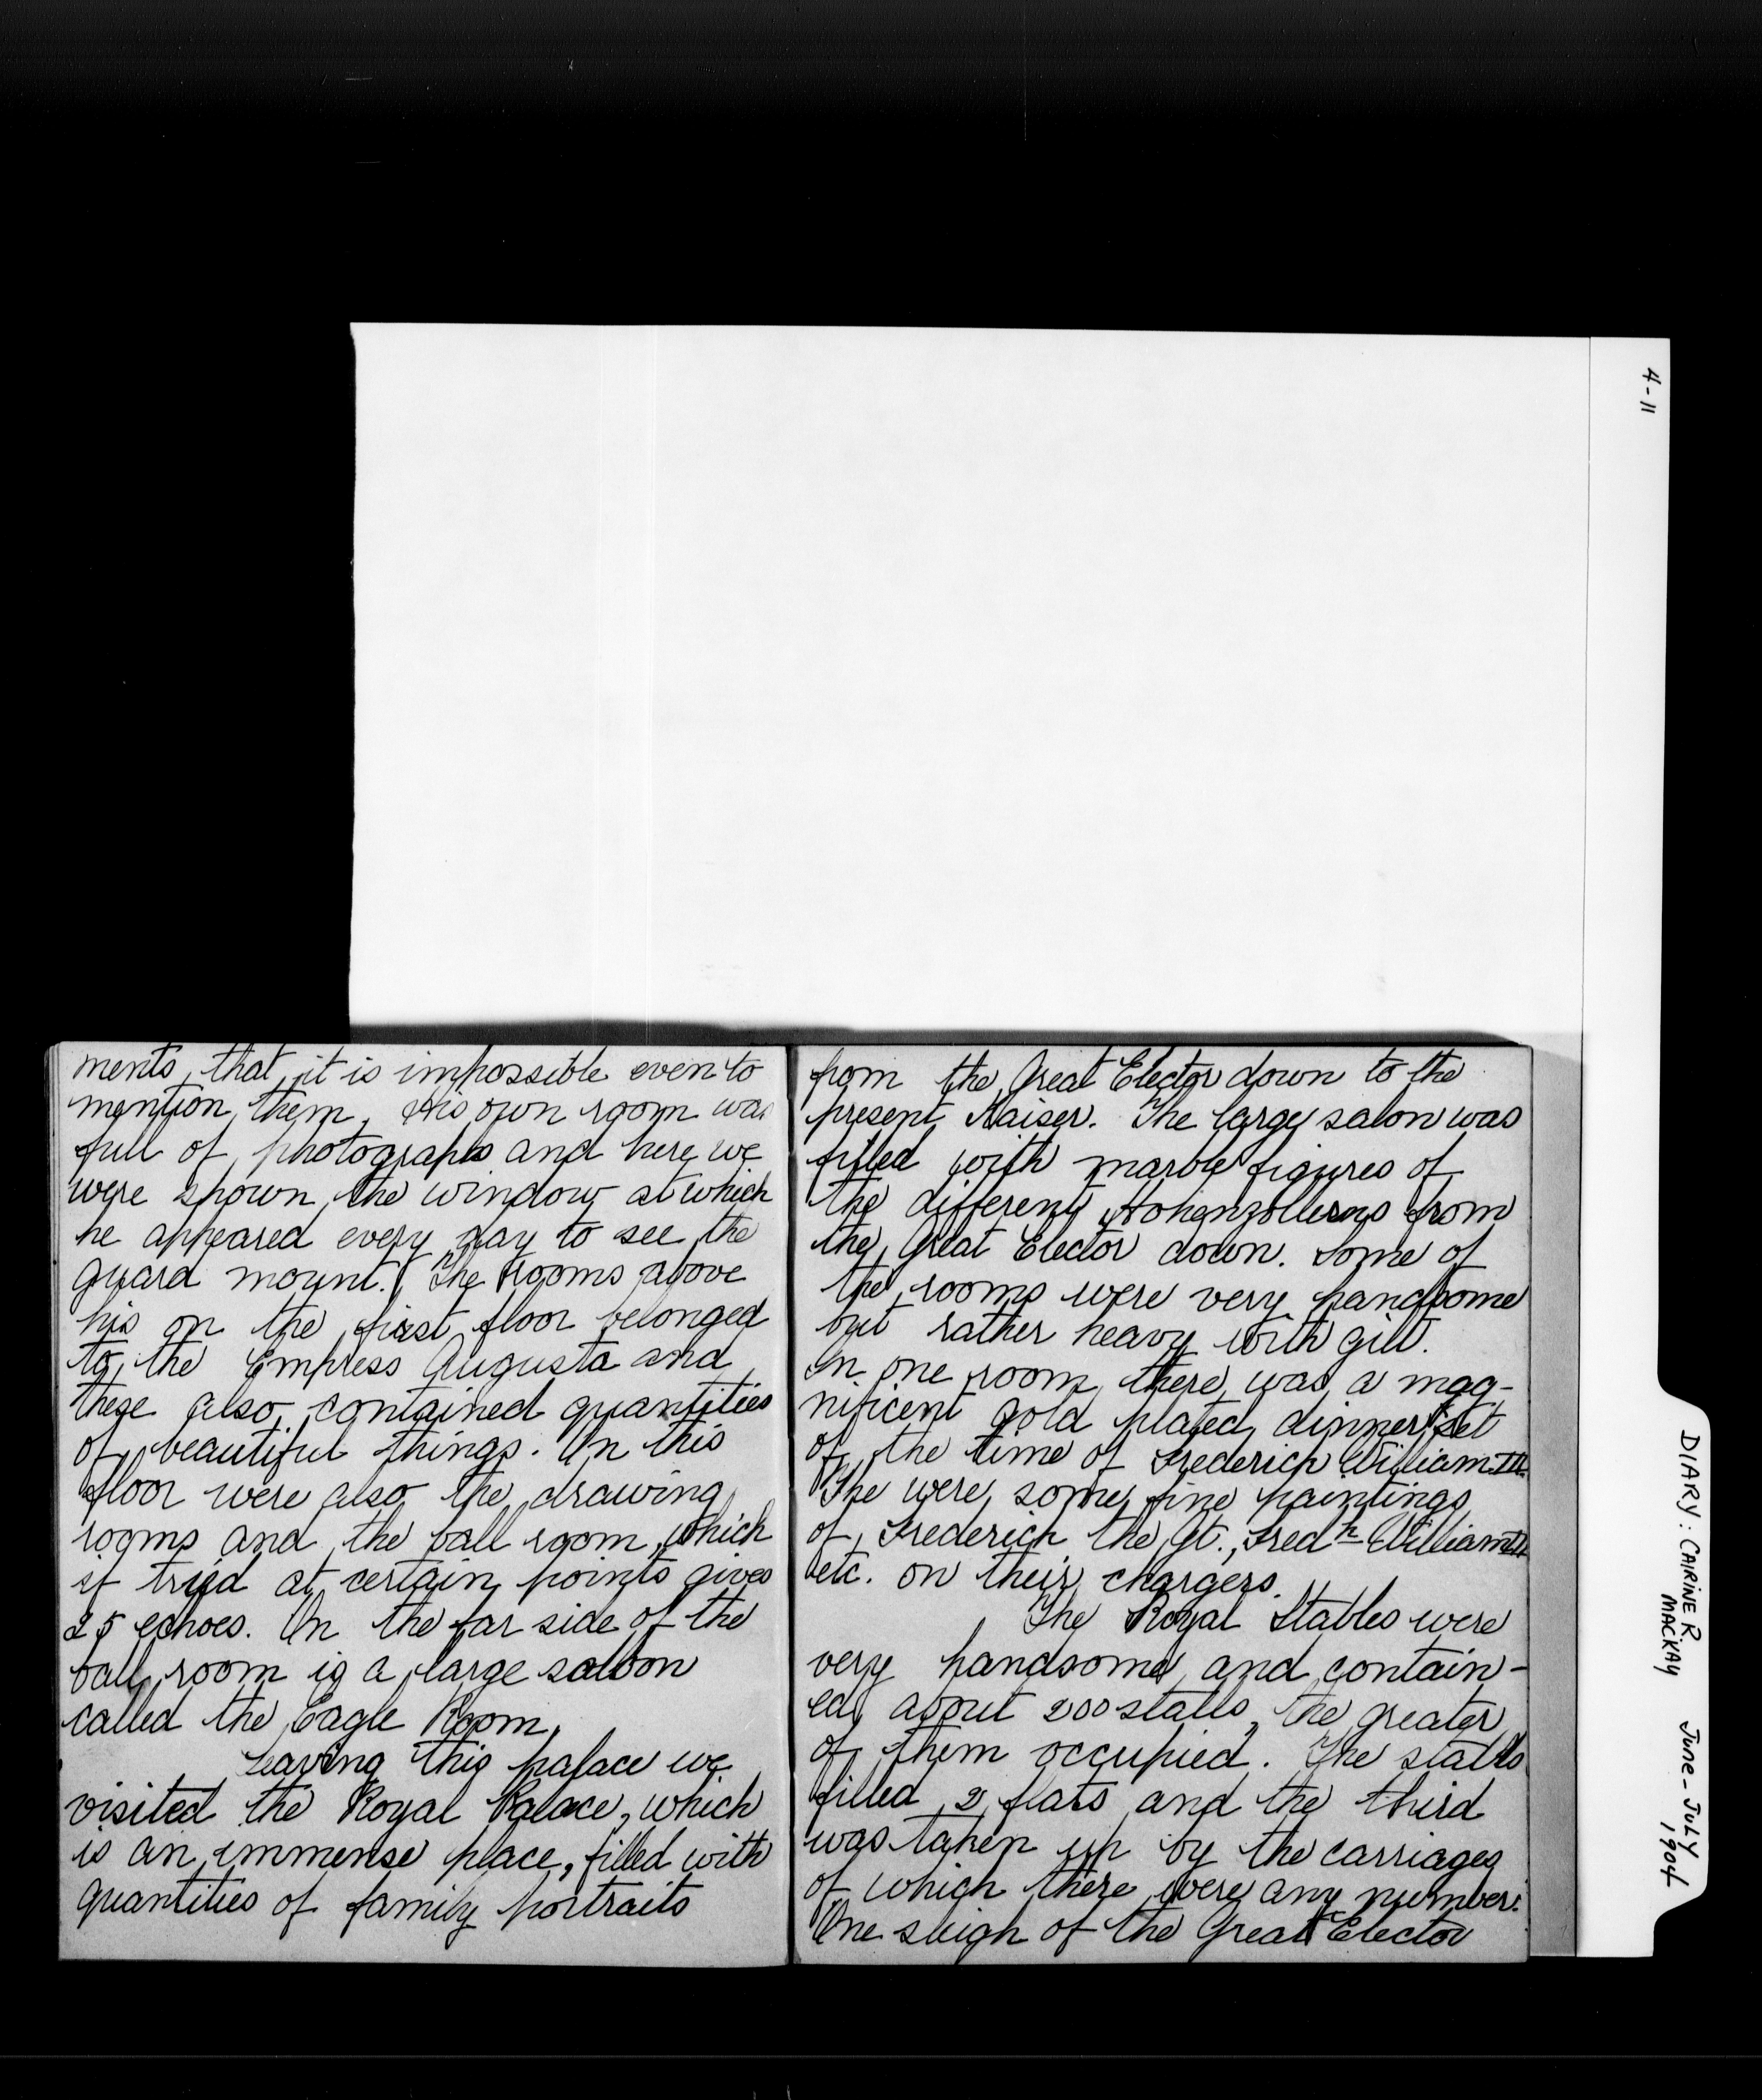 4-11
ments, that it is impossible even to
mention them. His own room was
full of photographs and here we
were shown the window at which
he appeared every day to see the
guard mount. The rooms above
his on the first floor belonged
to the Empress Augusta and
these also contained quantities
of beautiful things. On this
floor were also the drawing
rooms and the ball room, which
if tried at certain points gives
25 echoes. On the far side of the
ball room is a large saloon
called the Eagle Room.
Leaving this palace we
visited the Royal Palace, which
is an immense place, filled with
quantities of family portraits
from the Great Elector down to the
present Kaiser. The large salon was
filled with marble figures of
the different Hohenzollerns from
the Great Elector down. Some of
the rooms were very handsome
but rather heavy with gilt.
In one room there was a mag-
nificent gold plated dinner set
of the time of Frederich William III.
The were some fine paintings
of Frederich the Gt., Fredk William III
etc. on their chargers.
The Royal Stables were
very handsome and contain-
ed about 200 stalls, the greater
of them occupied. The stalls
filled 2 flats and the third
was taken up by the carriages
of which there were any number.
One sleigh of the Great Elector
DIARY: CAIRINE R. JUNE-JULY
MACKAY 1904